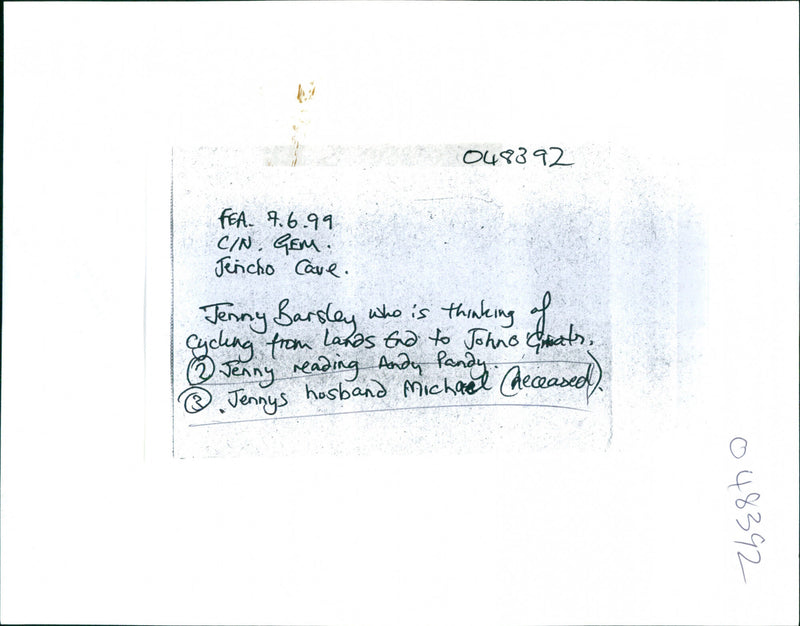 048392
FEA. 7.6.99
C/N. GEM.
Jericho Cave.
Jenny Barsley who is thinking of
Cycling from Lands End to Johno Groats.
② Jenny reading Andy Pandy.
③ .Jennys husband Michael (deceased).
048392